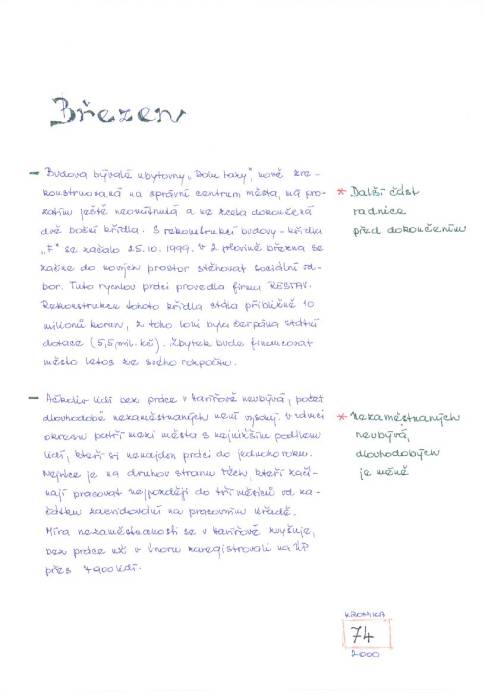 Březen
- Budova bývalé ubytovny „Dolu Lazy", nově zre-
konstruovaná na správní centrum města, má pro-
zatím ještě neomítnutá a ne zcela dokončená
dvě boční křídla. S rekonstrukcí budovy - křídla
„F" se začalo 25.10. 1999. V 2. polovině března se
začne do nových prostor stěhovat sociální od-
bor. Tuto rychlou práci provedla firma RESTAV.
Rekonstrukce tohoto křídla stála přibližně 10
milionů korun, z toho loni byla čerpána státní
dotace (5,5 mil. kč). Zbytek bude financovat
město letos ze svého rozpočtu.
* Další část
radnice
před dokončením
- Ačkoliv lidí bez práce v Havířově neubývá, počet
dlouhodobě nezaměstnaných není vysoký. V rámci
okresu patří mezi města s nejnižším podílem
lidí, kteří si nenajdou práci do jednoho roku.
Nejvíce je na druhou stranu těch, kteří začí-
nají pracovat nejpozději do tří měsíců od za-
čátku zaevidování na pracovním úřadě.
Míra nezaměstnanosti se v Havířově zvyšuje,
bez práce už v únoru zaregistrovali na ÚP
přes 7900 lidí.
* Nezaměstnaných
neubývá,
dlouhodobých
je méně
KRONIKA
74
2000